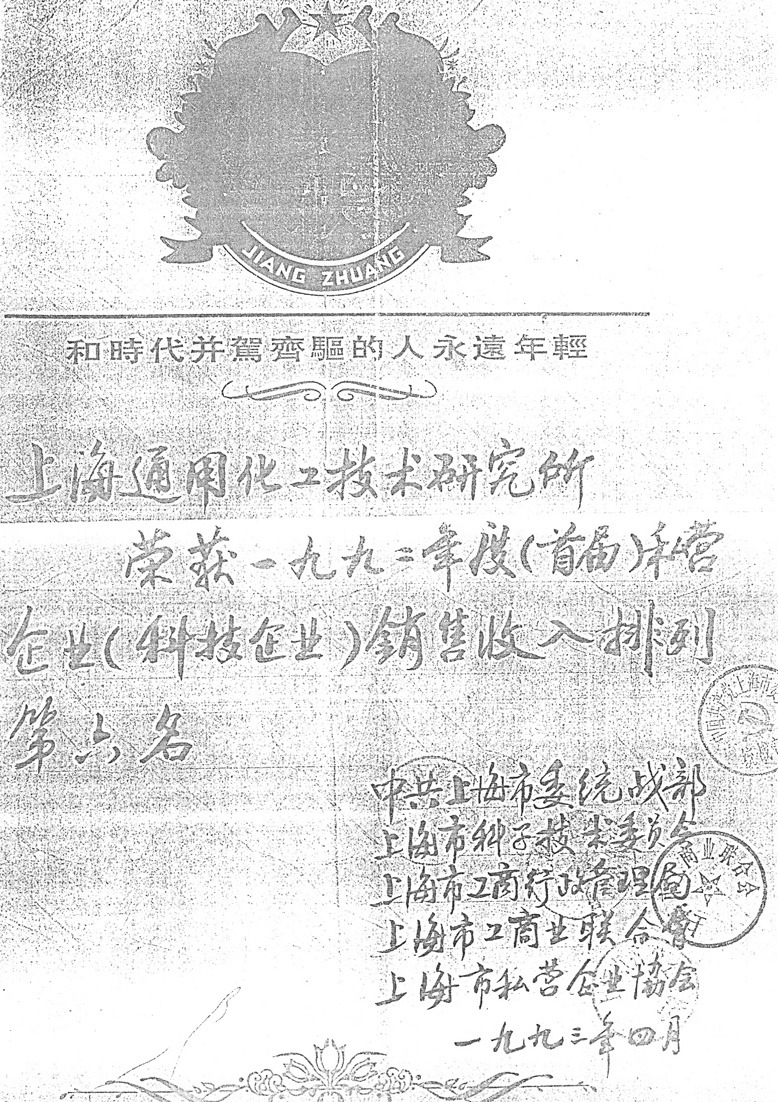 JIANG ZHUANG
和時代并駕齊驅的人永遠年輕
上海通用化工技术研究所
荣获一九九二年度(首届)私营
企业(科技企业)銷售收入排列
第六名
中共上海市委统战部
上海市科学技术委员会
上海市工商行政管理局
上海市工商业联合会
商业联合会
上海市私营企业协会
一九九三年四月